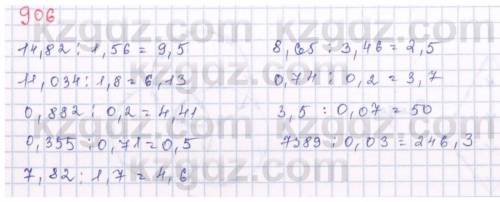 906
14,82 : 1,56 = 9,5
11,034 : 1,8 = 6,13
0,882 : 0,2 = 4,41
0,355 : 0,71 = 0,5
7,82 : 1,7 = 4,6
8,65 : 3,46 = 2,5
0,74 : 0,2 = 3,7
3,5 : 0,07 = 50
7389 : 0,03 = 246,3
kzgdz.com
kzgdz.com
kzgdz.com
kzgdz.com
kzgdz.com
kzgdz.com